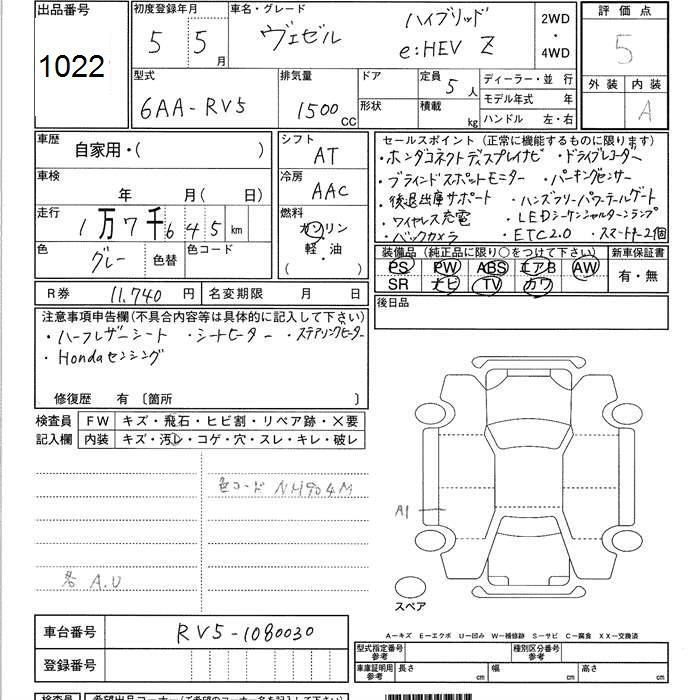 出品番号 初度登録年月 車名・グレード 2WD・4WD 評価点
1022 5 5月 ヴェゼル ハイブリッド 5
e:HEV Z
型式 排気量 ドア 定員 5人 ディーラー・並 行 外装 内装
6AA-RV5 1500cc 形状 積載 kg モデル年式 年 A
ハンドル 左・右
車歴 自家用・( )
シフト AT
車検 年 月( 日)
冷房 AAC
走行 1万7千645km
燃料 ガソリン 軽・油 ( ・ )
色 グレー 色替 色コード
R券 11,740円 名変期限 月 日
セールスポイント(正常に機能するものに限ります)
・ホンダコネクトディスプレイナビ ・ドライブレコーダー
・ブラインドスポットモニター ・パーキングセンサー
・後退出庫サポート ・ハンズフリーパワーテールゲート
・ワイヤレス充電 ・LEDシーケンシャルターンランプ
・バックカメラ ・ETC2.0 ・スマートキー2個
装備品(純正品に限り○をつけて下さい) 新車保証書
PS PW ABS エアB AW 有・無
SR ナビ TV カワ
後日品
注意事項申告欄(不具合内容等は具体的に記入して下さい)
・ハーフレザーシート ・シートヒーター ・ステアリングヒーター
・Hondaセンシング
修復歴 有 〔箇所 〕
検査員 FW キズ・飛石・ヒビ割・リペア跡・X要
記入欄 内装 キズ・汚レ・コゲ・穴・スレ・キレ・破レ
色コード NH904M
A1
各 A.U
スペア
A-キズ E-エクボ U-凹み W-補修跡 S-サビ C-腐食 XX-交換済
車台番号 RV5-1080030
登録番号
型式指定番号 参考 種別区分番号 参考
車庫証明用 参考 長さ cm 幅 cm 高さ cm
検査員 希望出品コーナー(ご希望のコーナー名を記入下さい)